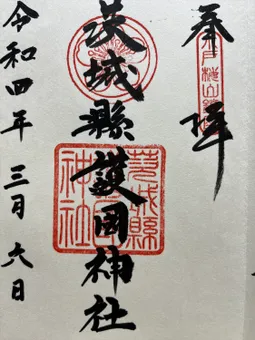 奉拝
水戸桜山鎮座
茨城縣護国神社
茨城縣護國神社
令和四年三月六日